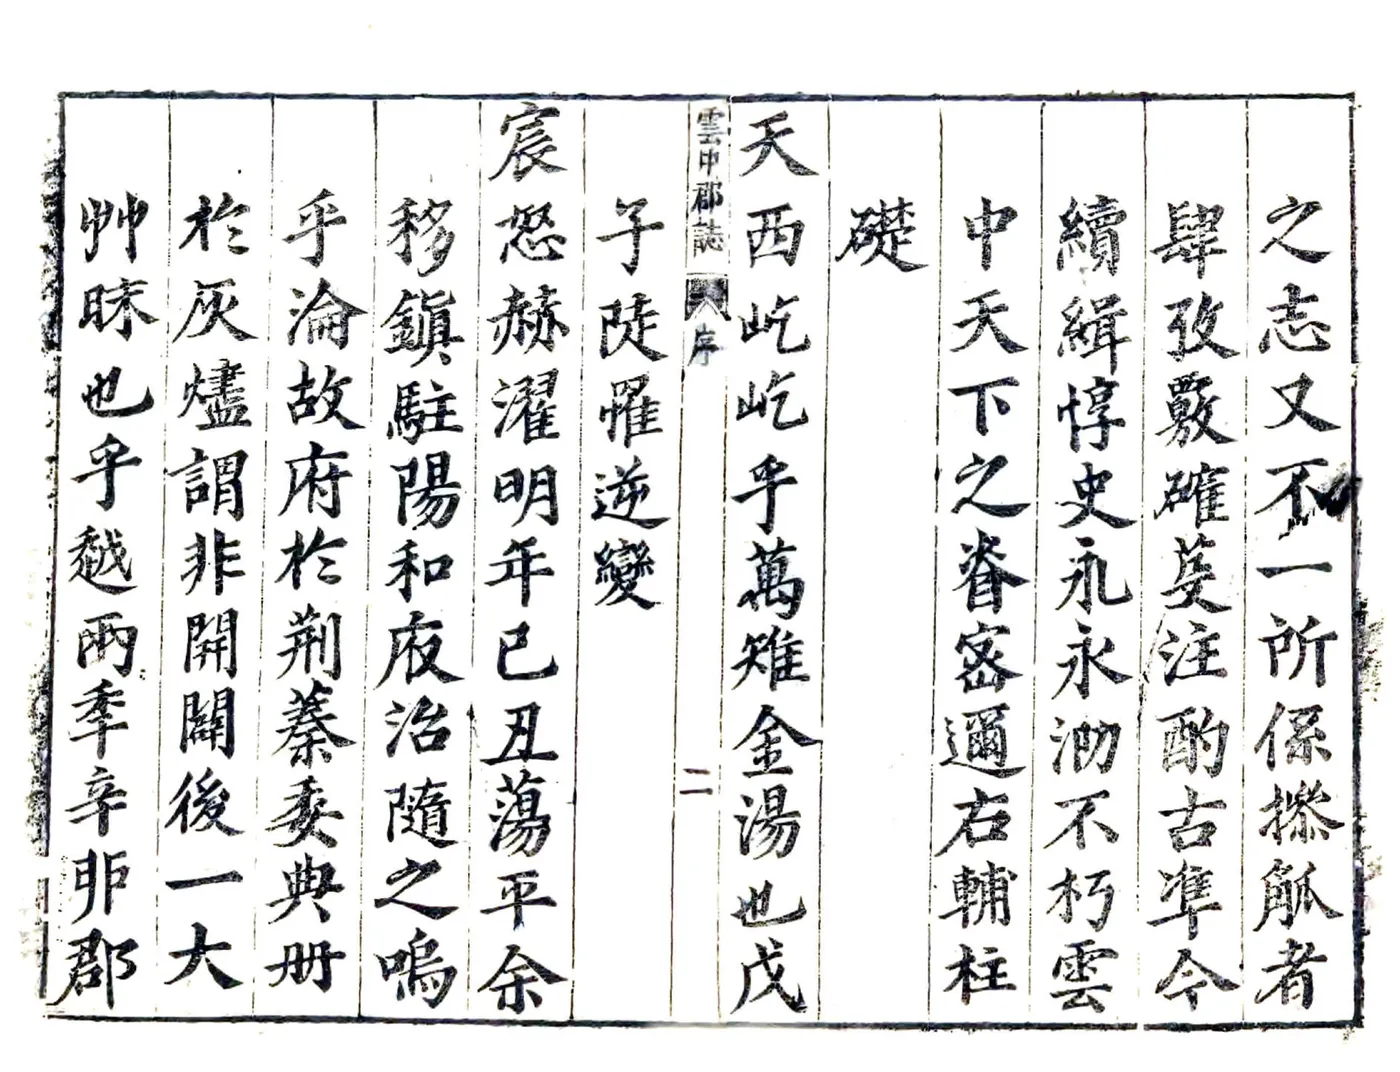 之志又不一所係操觚者
肆攷覈確芟注酌古準今
續緝惇史永永泐不朽雲
中天下之脊密邇右輔柱
礎
天西屹屹乎萬雉金湯也戊
雲中郡誌 序 二
子陡罹逆變
宸怒赫濯明年己丑蕩平余
移鎮駐陽和夜治隨之嗚
乎淪故府於荊蓁委典册
於灰燼謂非開闢後一大
艸昧也乎越兩季辛卯郡